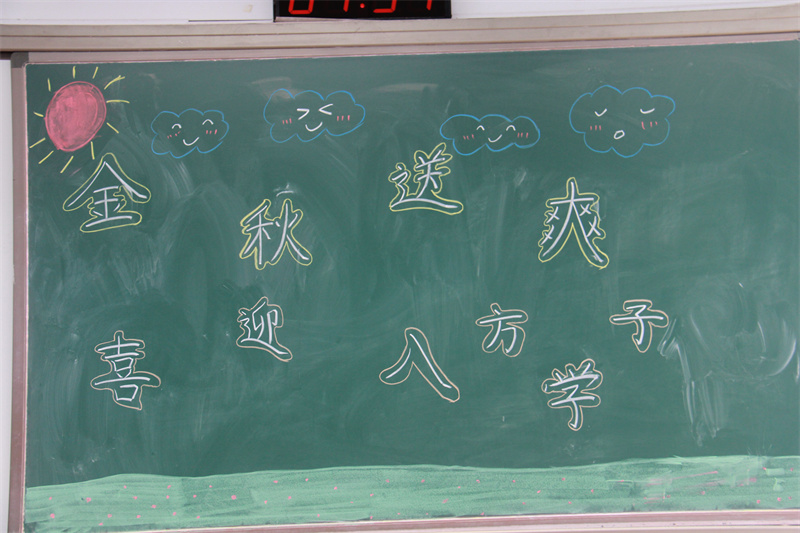 金秋送爽
喜迎八方学子